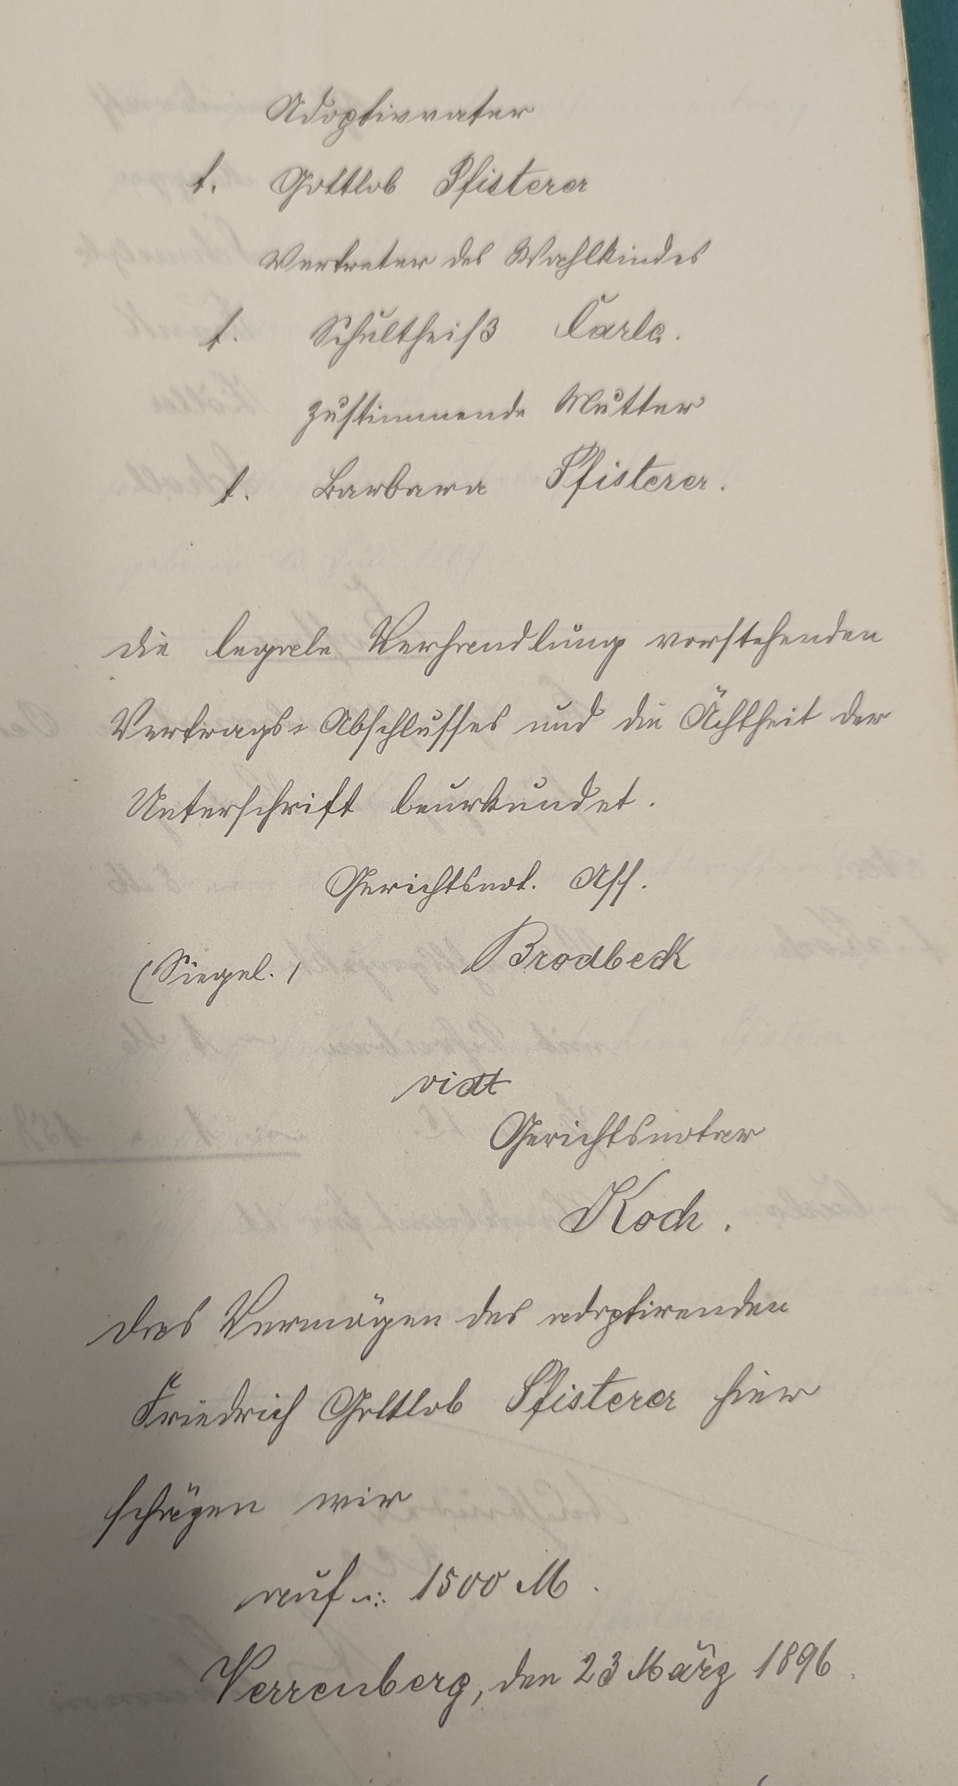 Adoptivvater
t. Gottlob Pfisterer
Vertreter des Wahlkindes
t. Schultheiß Carle.
zustimmende Mutter
t. Barbara Pfisterer.
die legale Verhandlung vorstehenden
Vertrags-Abschlusses und die Ächtheit der
Unterschrift beurkundet.
Gerichtsnot. Ass.
(Siegel.) Brodbeck
vidt
Gerichtsnotar
Koch.
Das Vermögen des adoptirenden
Friedrich Gottlob Pfisterer hier
schäzen wir
auf .: 1500 M.
Verrenberg, den 23 März 1896.